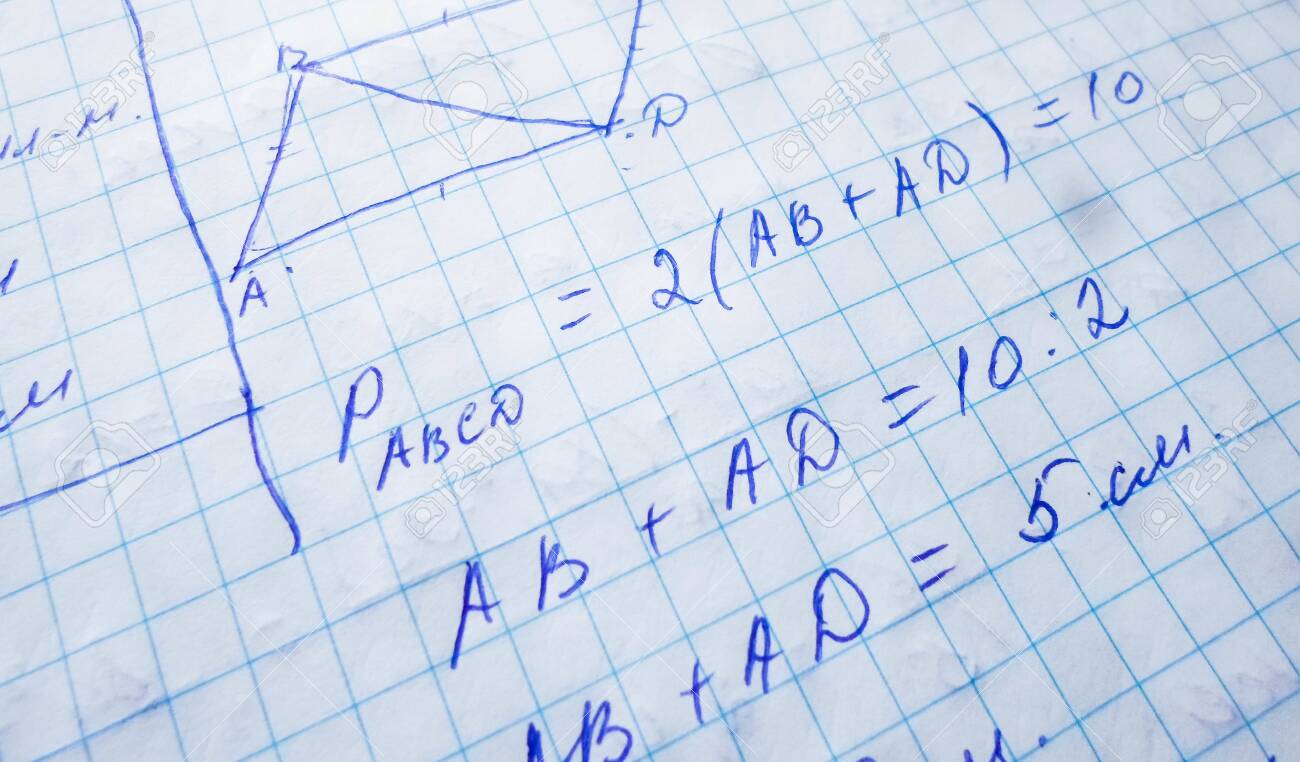 B
D
A
P ABCD = 2(AB + AD) = 10
AB + AD = 10 : 2
AB + AD = 5 см.